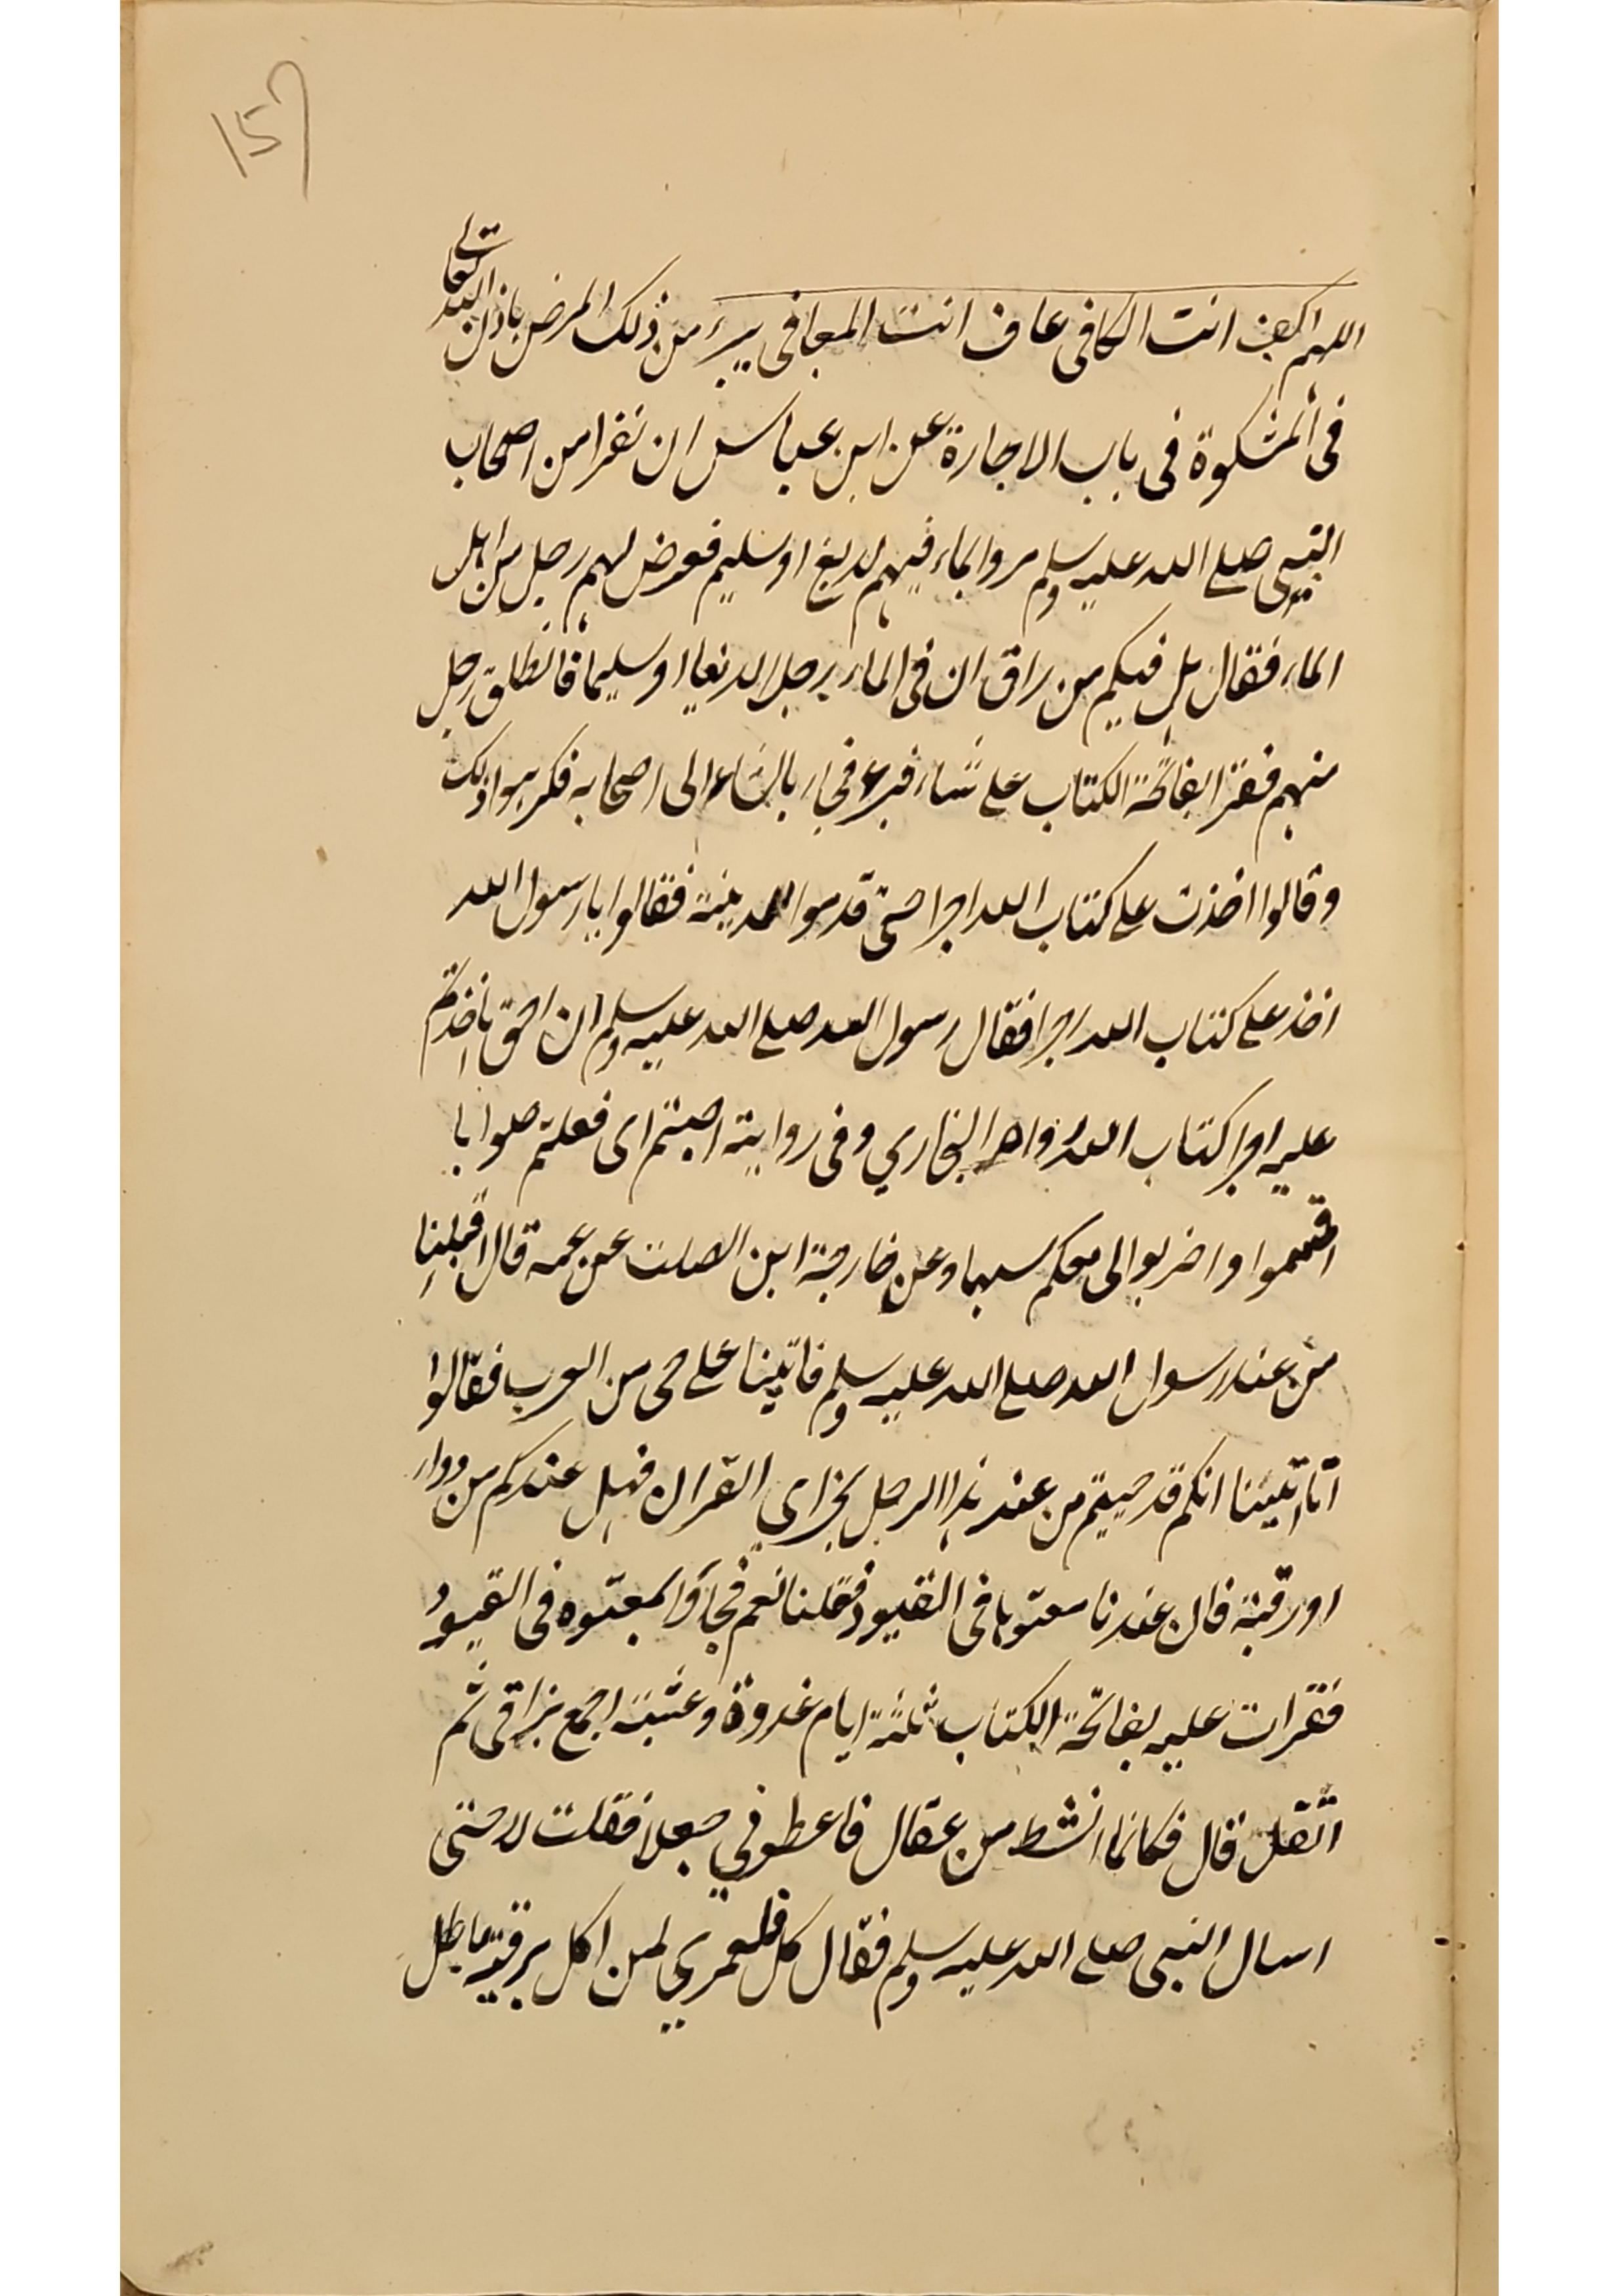 157
اللهم اكف انت الكافى عاف انت المعافى يبرء من ذلك المرض باذن الله تعالى
فى المشكوة فى باب الاجارة عن ابن عباس ان نفرا من اصحاب
النبي صلے الله عليه وسلم مروا بماء فيهم لديغ او سليم فعرض لهم رجل من اهل
الماء فقال هل فيكم من راق ان فى الماء رجلا لديغا او سليما فانطلق رجل
منهم فقرا بفاتحة الكتاب على شاء فبرء فجاء بالشاء الى اصحابه فكرهوا ذلك
و قالوا اخذت على كتاب الله اجرا حتى قدموا المدينة فقالوا يا رسول الله
اخذ على كتاب الله اجرا فقال رسول الله صلے الله عليه وسلم ان احق ما اخذتم
عليه اجرا كتاب الله رواه البخاري و فى رواية اصبتم اى فعلتم صوابا
اقتسموا و اضربوا لى معكم سهما و عن خارجة ابن الصلت عن عمه قال اقبلنا
من عند رسول الله صلے الله عليه وسلم فاتينا على حى من العرب فقالوا
انا انبئنا انكم قد جيتم من عند هذا الرجل بخير اى القران فهل عندكم من دواء
او رقية فان عندنا معتوها فى القيود فقلنا نعم فجاؤا بمعتوه فى القيود
فقرات عليه بفاتحة الكتاب ثلثة ايام غدوة و عشية اجمع بزاقى ثم
اتفل قال فكانما انشط من عقال فاعطوني جعلا فقلت لا حتى
اسال النبى صلے الله عليه وسلم فقال كل فلعمري لمن اكل برقية باطل